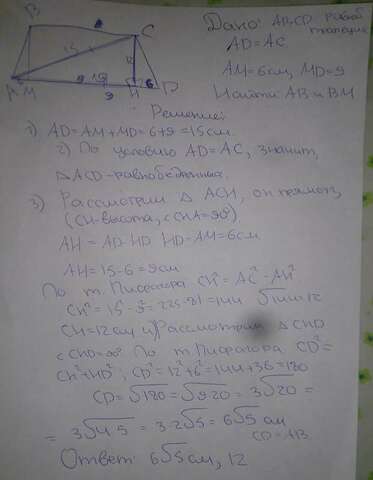 B C
Дано: ABCD равноб
трапеция
AD=AC
AM=6см, MD=9
Найти: AB и BM
15 12
9 15 6
A M 9 H D
Решение:
1) AD=AM+MD=6+9=15см.
2) По условию AD=AC, значит,
△ ACD-равнобедренный.
3) Рассмотрим △ ACH, он прямоуг,
(CH-высота, <CHA=90°)
AH = AD-HD HD=AM=6см
AH=15-6=9см
По т. Пифагора CH²=AC²-AH²
CH²=15²-9²=225-81=144 √144=12
CH=12см Рассмотрим △ CHD
<CHD=90° По т. Пифагора CD²=
CH²+HD²; CD²=12²+6²=144+36=180
CD=√180=√9·20=3√20=
=3√4·5=3·2√5=6√5 см
CD=AB
Ответ: 6√5см, 12